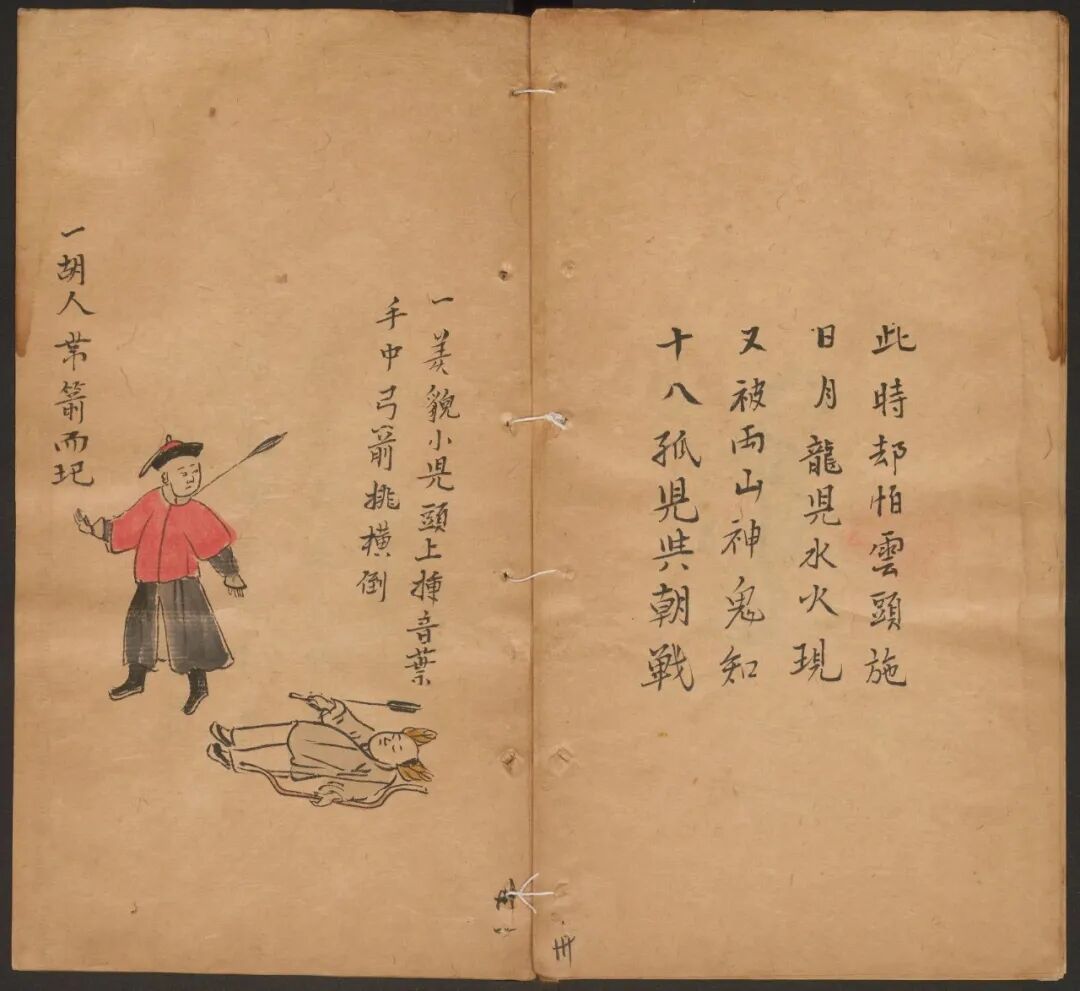 此時却怕雲頭施
日月龍児水火現
又被両山神鬼知
十八孤児共朝戦
卅
一美貌小児頭上揷音葉
手中弓箭挑横倒
一胡人帯箭而圯
卅一